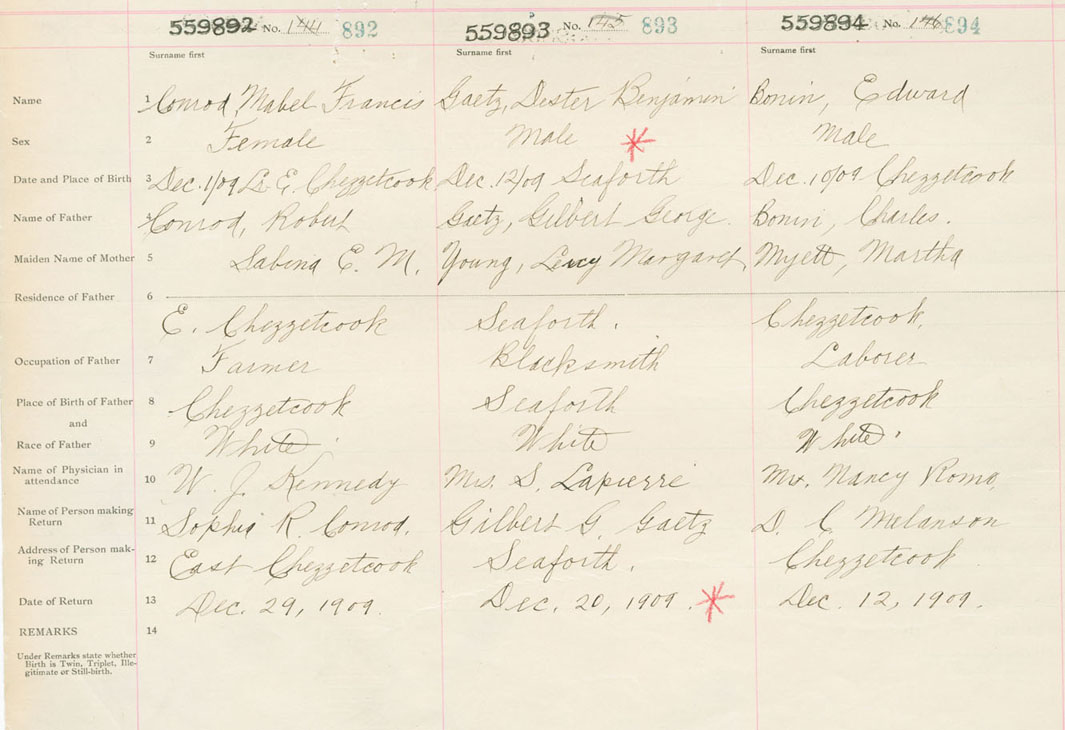 559892 No. 144 892 559893 No. 145 893 559894 No. 146 894
Surname first Surname first Surname first
Name 1 Conrod, Mabel Francis Gaetz, Dester Benjamin Bonin, Edward
Sex 2 Female Male Male
Date and Place of Birth 3 Dec. 1/09 E. Chezzetcook Dec. 12/09 Seaforth Dec. 10/09 Chezzetcook
Name of Father 4 Conrod, Robert Gaetz, Gilbert George. Bonin, Charles.
Maiden Name of Mother 5 Sabina E. M. Young, Lucy Margaret, Myett, Martha
Residence of Father 6
E. Chezzetcook Seaforth. Chezzetcook.
Occupation of Father 7 Farmer Blacksmith Laborer
Place of Birth of Father 8 Chezzetcook Seaforth Chezzetcook
and
Race of Father 9 White White White
Name of Physician in
attendance 10 W. J. Kennedy Mrs. S. Lapierre Mrs. Nancy Roma
Name of Person making
Return 11 Sophia R. Conrod. Gilbert G. Gaetz D. C. Melanson
Address of Person mak-
ing Return 12 East Chezzetcook Seaforth. Chezzetcook
Date of Return 13 Dec. 29, 1909. Dec. 20, 1909. Dec. 12, 1909.
REMARKS 14
Under Remarks state whether
Birth is Twin, Triplet, Ille-
gitimate or Still-birth.